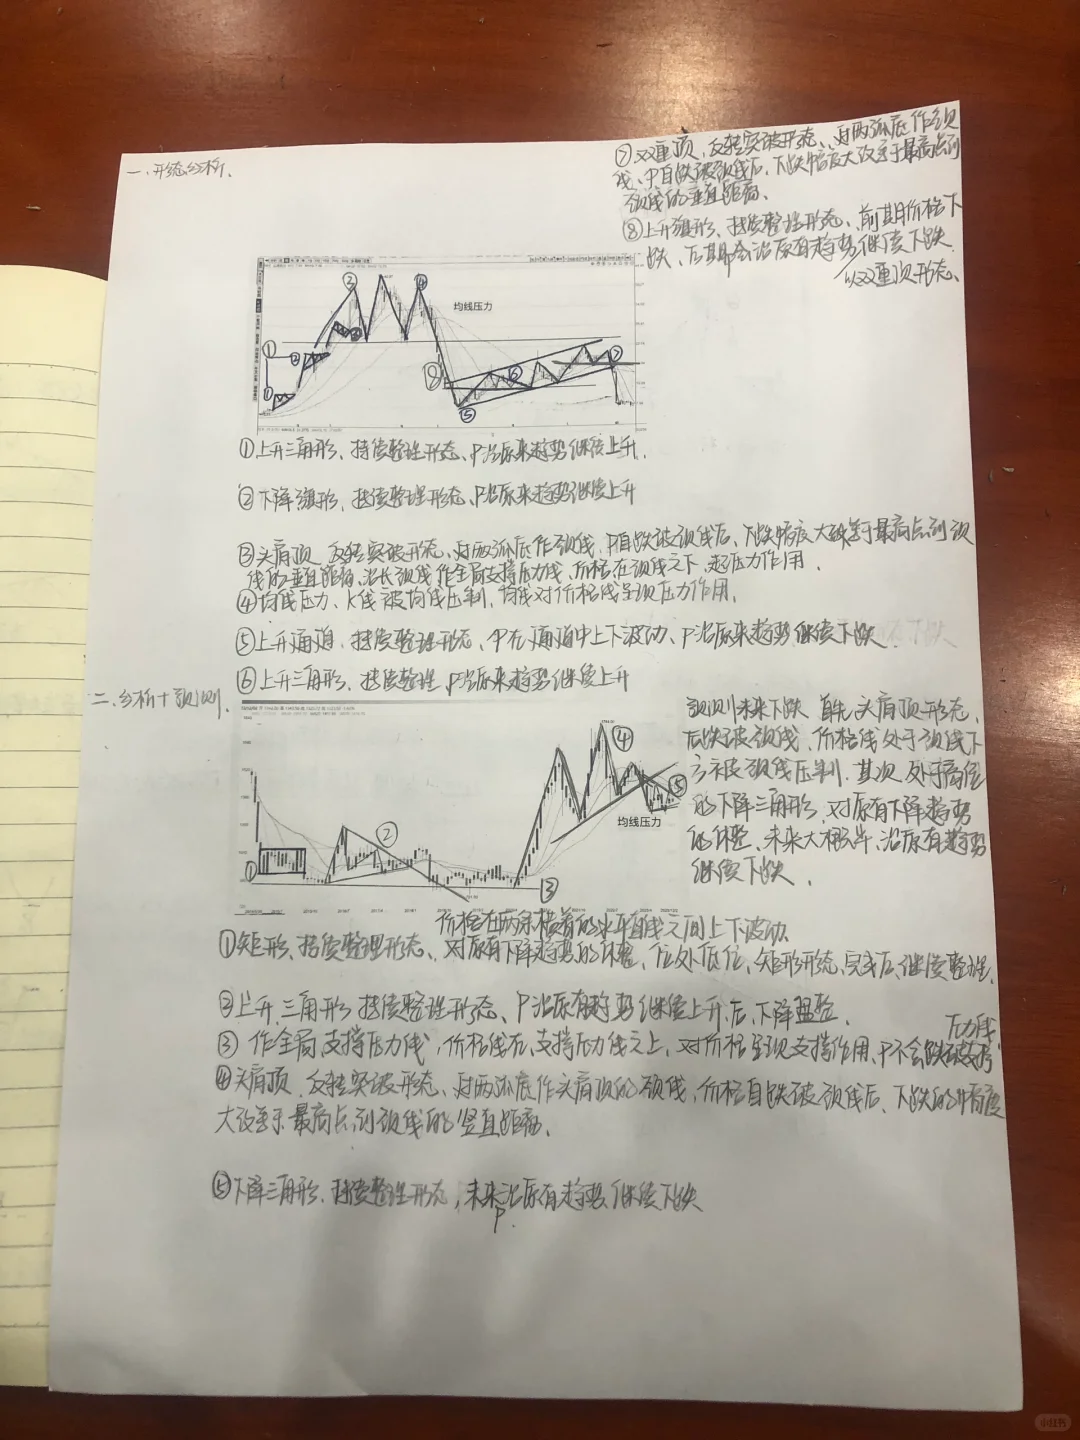 一、形态分析、
⑦双重顶、反转突破形态、对两低底作颈
线、P自跌破颈线后、下跌幅度大致等于最高点到
颈线的垂直距离、
⑧上升旗形、持续整理形态、前期价格下
跌、后期会沿原有趋势继续下跌
以双重顶形态、
均线压力
①上升三角形、持续整理形态、P沿原来趋势继续上升、
②下降旗形、持续整理形态、P沿原来趋势继续上升
③头肩顶 反转突破形态、对两低底作颈线、P自跌破颈线后、下跌幅度大致等于最高点到颈
线的垂直距离、沿长颈线作全局支撑压力线、价格在颈线之下、起压力作用、
④均线压力、K线被均线压制、均线对价格线呈现压力作用、
⑤上升通道、持续整理形态、P在通道中上下波动、P沿原来趋势继续下跌
⑥上升三角形、持续整理、P沿原来趋势继续上升
二、分析+预测、
预测未来下跌 首先头肩顶形态、
后跌破颈线、价格线处于颈线下
方被颈线压制、其次、处于高位
的下降三角形、对原有下降趋势
的休整、未来大概率、沿原有趋势
继续下跌、
均线压力
价格在两条横着的水平直线之间上下波动、
①矩形、持续整理形态、对原有下降趋势的休整、位处低位、矩形形态完成后、继续整理、
②上升三角形 持续整理形态、P沿原有趋势继续上升、后、下降盘整、
压力线
③ 作全局支撑压力线、价格线在支撑压力线之上、对价格呈现支撑作用、P不会跌破支撑
④头肩顶、反转突破形态、对两低底作头肩顶的颈线、价格自跌破颈线后、下跌的高度
大致等于最高点到颈线的竖直距离、
⑤下降三角形、持续整理形态，未来沿原有趋势继续下跌
P、
小红书